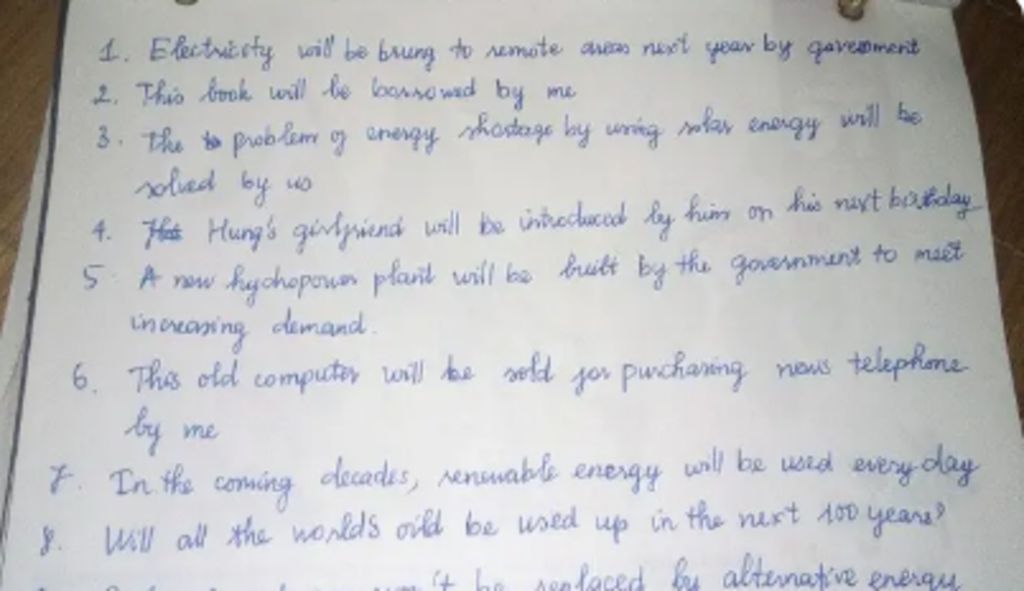 1. Electricity will be brung to remote areas next year by goverment
2. This book will be borrowed by me
3. The problem of energy shortage by using solar energy will be
solved by us
4. Hung's girlfriend will be introduced by him on his next birthday
5 A new hychopower plant will be built by the government to meet
increasing demand.
6. This old computer will be sold for purchasing news telephone
by me
7. In the coming decades, renewable energy will be used every day
8. Will all the world's oild be used up in the next 100 years?
be replaced by alternative energy